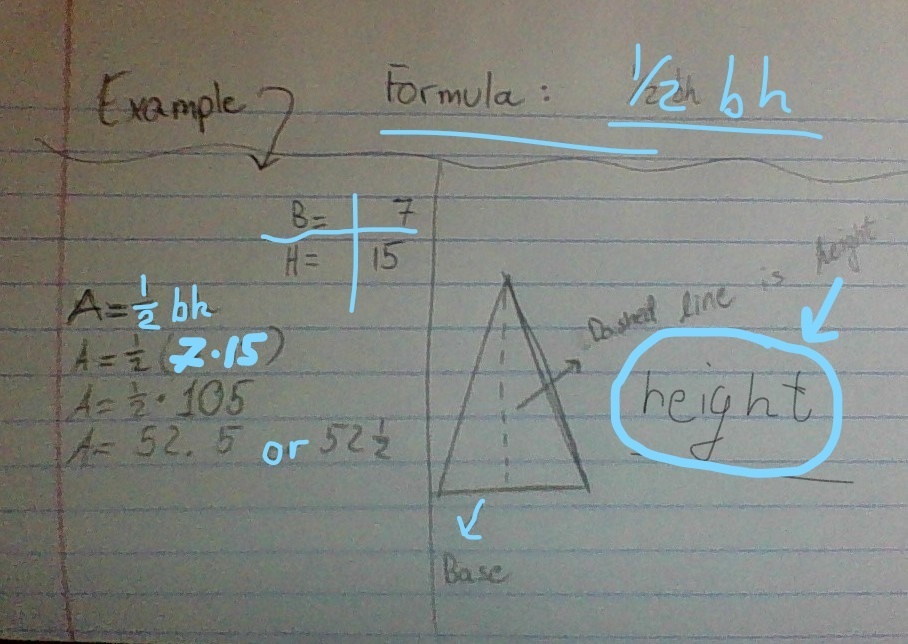 Example
Formula: 1/2 bh
B= 7
H= 15
A= 1/2 bh
A= 1/2 (7·15)
A= 1/2 · 105
A= 52.5 or 52 1/2
Dashed line is height
height
Base